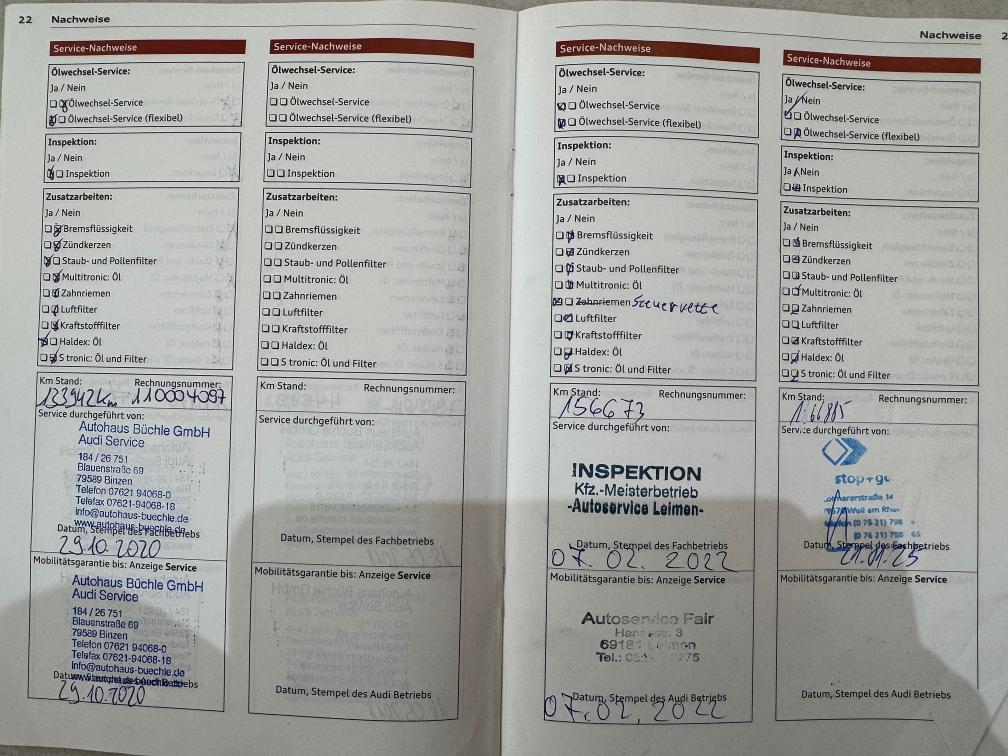 22 Nachweise
Service-Nachweise
Ölwechsel-Service:
Ja / Nein
Ölwechsel-Service
Ölwechsel-Service (flexibel)
Inspektion:
Ja / Nein
Inspektion
Zusatzarbeiten:
Ja / Nein
Bremsflüssigkeit
Zündkerzen
Staub- und Pollenfilter
Multitronic: Öl
Zahnriemen
Luftfilter
Kraftstofffilter
Haldex: Öl
S tronic: Öl und Filter
Km Stand: Rechnungsnummer:
133942Km 110004097
Service durchgeführt von:
Autohaus Büchle GmbH
Audi Service
184 / 26 751
Blauenstraße 69
79589 Binzen
Telefon 07621 94068-0
Telefax 07621-94068-18
info@autohaus-buechle.de
www.autohaus-buechle.de
Datum, Stempel des Fachbetriebs
29.10.2020
Mobilitätsgarantie bis: Anzeige Service
Autohaus Büchle GmbH
Audi Service
184 / 26 751
Blauenstraße 69
79589 Binzen
Telefon 07621 94068-0
Telefax 07621-94068-18
info@autohaus-buechle.de
www.autohaus-buechle.de
Datum, Stempel des Audi Betriebs
29.10.2020
Service-Nachweise
Ölwechsel-Service:
Ja / Nein
Ölwechsel-Service
Ölwechsel-Service (flexibel)
Inspektion:
Ja / Nein
Inspektion
Zusatzarbeiten:
Ja / Nein
Bremsflüssigkeit
Zündkerzen
Staub- und Pollenfilter
Multitronic: Öl
Zahnriemen
Luftfilter
Kraftstofffilter
Haldex: Öl
S tronic: Öl und Filter
Km Stand: Rechnungsnummer:
Service durchgeführt von:
Datum, Stempel des Fachbetriebs
Mobilitätsgarantie bis: Anzeige Service
Datum, Stempel des Audi Betriebs
Nachweise 2
Service-Nachweise
Ölwechsel-Service:
Ja / Nein
Ölwechsel-Service
Ölwechsel-Service (flexibel)
Inspektion:
Ja / Nein
Inspektion
Zusatzarbeiten:
Ja / Nein
Bremsflüssigkeit
Zündkerzen
Staub- und Pollenfilter
Multitronic: Öl
Zahnriemen Steuerkette
Luftfilter
Kraftstofffilter
Haldex: Öl
S tronic: Öl und Filter
Km Stand: Rechnungsnummer:
156673
Service durchgeführt von:
INSPEKTION
Kfz.-Meisterbetrieb
-Autoservice Leimen-
Datum, Stempel des Fachbetriebs
07. 02. 2022
Mobilitätsgarantie bis: Anzeige Service
Autoservice Fair
3
69181 Leimen
Tel.:
Datum, Stempel des Audi Betriebs
07. 02. 2022
Service-Nachweise
Ölwechsel-Service:
Ja / Nein
Ölwechsel-Service
Ölwechsel-Service (flexibel)
Inspektion:
Ja / Nein
Inspektion
Zusatzarbeiten:
Ja / Nein
Bremsflüssigkeit
Zündkerzen
Staub- und Pollenfilter
Multitronic: Öl
Zahnriemen
Luftfilter
Kraftstofffilter
Haldex: Öl
S tronic: Öl und Filter
Km Stand: Rechnungsnummer:
Service durchgeführt von:
stop+go
Weil am
(0 76 21)
(0 76 21)
Datum, Stempel des Fachbetriebs
21.01.25
Mobilitätsgarantie bis: Anzeige Service
Datum, Stempel des Audi Betriebs